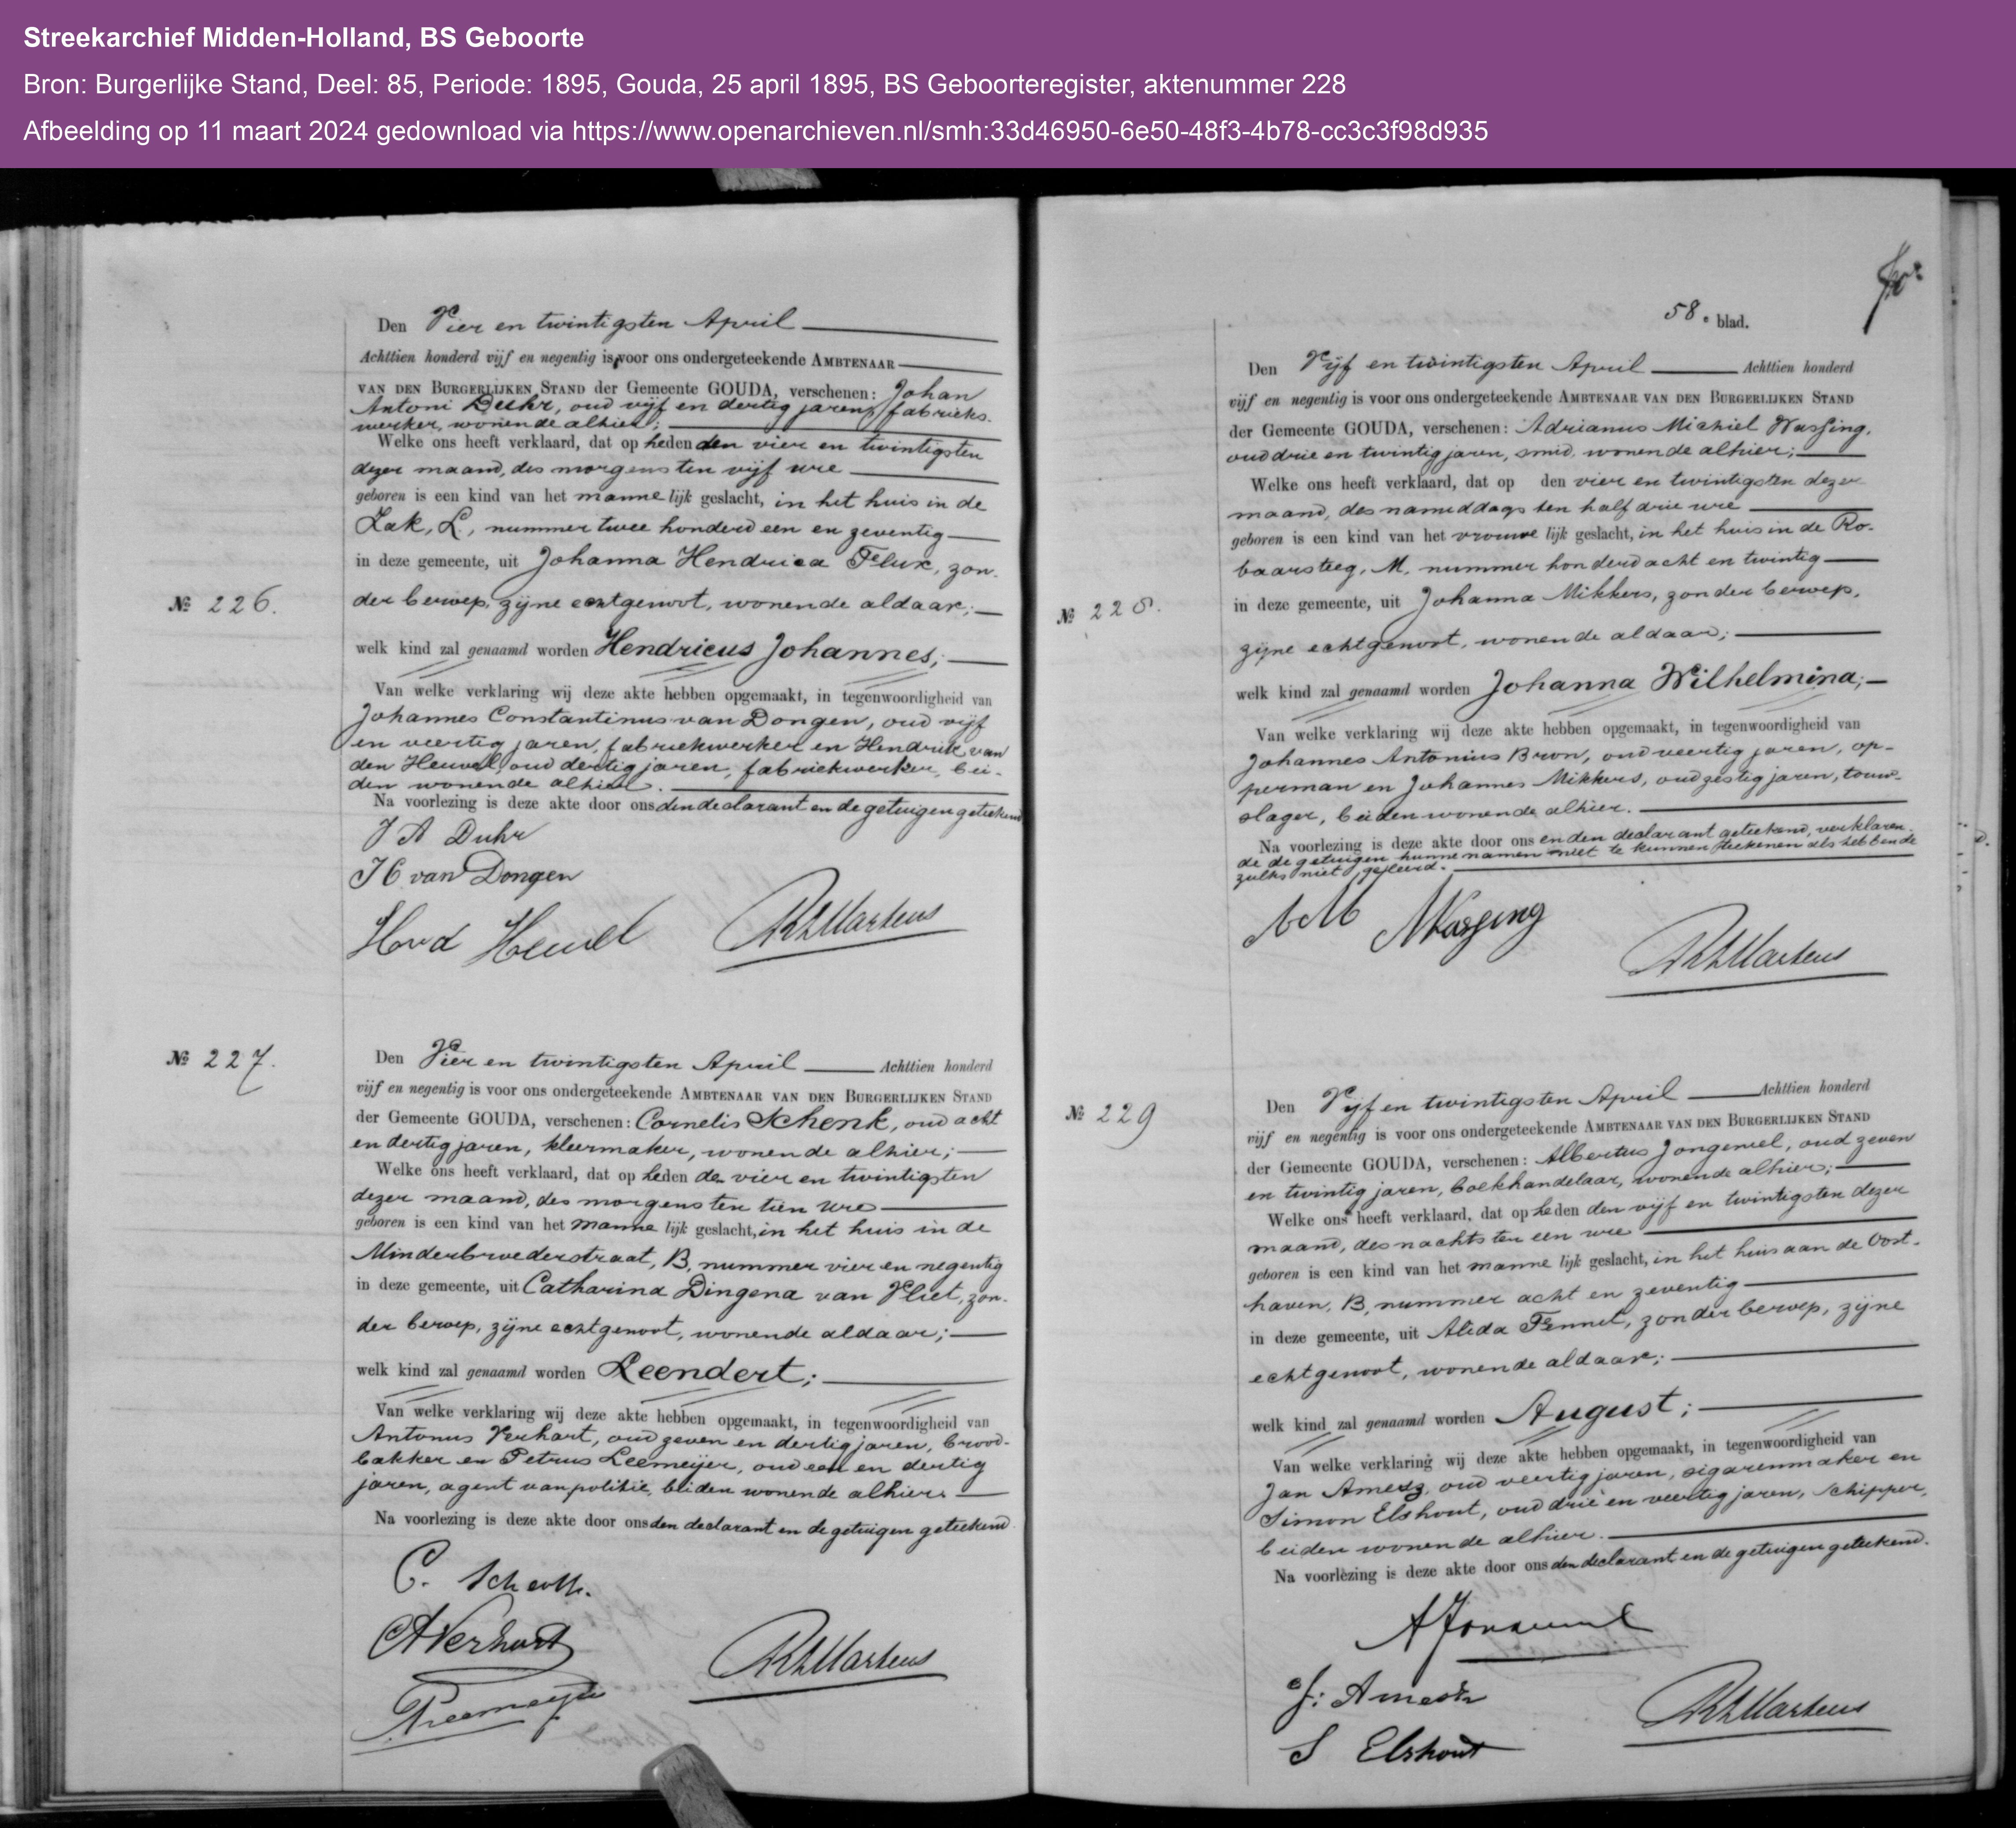 Streekarchief Midden-Holland, BS Geboorte
Bron: Burgerlijke Stand, Deel: 85, Periode: 1895, Gouda, 25 april 1895, BS Geboorteregister, aktenummer 228
Afbeelding op 11 maart 2024 gedownload via https://www.openarchieven.nl/smh:33d46950-6e50-48f3-4b78-cc3c3f98d935
№ 226.
Den Vier en twintigsten April
Achttien honderd vijf en negentig is voor ons ondergeteekende AMBTENAAR
VAN DEN BURGERLIJKEN STAND der Gemeente GOUDA, verschenen: Johan
Antoni Duhr, oud vijf en dertig jaren, fabrieks-
werker, wonende alhier;
Welke ons heeft verklaard, dat op heden den vier en twintigsten
dezer maand, des morgens ten vijf ure
geboren is een kind van het mannelijk geslacht, in het huis in de
Zak, L, nummer twee honderd een en zeventig
in deze gemeente, uit Johanna Hendrica Flux, zon-
der beroep, zijne echtgenoot, wonende aldaar;
welk kind zal genaamd worden Hendricus Johannes;
Van welke verklaring wij deze akte hebben opgemaakt, in tegenwoordigheid van
Johannes Constantinus van Dongen, oud vijf
en veertig jaren, fabriekwerker en Hendrik van
den Heuvel, oud dertig jaren, fabriekwerker, bei-
den wonende alhier.
Na voorlezing is deze akte door ons den declarant en de getuigen geteekend
J A Duhr
J C van Dongen
H v d Heuvel
Martens
№ 227.
Den Vier en twintigsten April Achttien honderd
vijf en negentig is voor ons ondergeteekende AMBTENAAR VAN DEN BURGERLIJKEN STAND
der Gemeente GOUDA, verschenen: Cornelis Schenk, oud acht
en dertig jaren, kleermaker, wonende alhier;
Welke ons heeft verklaard, dat op heden den vier en twintigsten
dezer maand, des morgens ten tien ure
geboren is een kind van het mannelijk geslacht, in het huis in de
Minderbroederstraat, B, nummer vier en negentig
in deze gemeente, uit Catharina Dingena van Vliet, zon-
der beroep, zijne echtgenoot, wonende aldaar;
welk kind zal genaamd worden Leendert;
Van welke verklaring wij deze akte hebben opgemaakt, in tegenwoordigheid van
Antonus Verhart, oud zeven en dertig jaren, brood-
bakker en Petrus Leemeijer, oud een en dertig
jaren, agent van politie, beiden wonende alhier.
Na voorlezing is deze akte door ons den declarant en de getuigen geteekend
C. Schenk.
A Verhart
P Leemeijer
Martens
58e blad.
№ 228.
Den Vijf en twintigsten April Achttien honderd
vijf en negentig is voor ons ondergeteekende AMBTENAAR VAN DEN BURGERLIJKEN STAND
der Gemeente GOUDA, verschenen: Adrianus Michiel Wassing,
oud drie en twintig jaren, smid, wonende alhier;
Welke ons heeft verklaard, dat op den vier en twintigsten dezer
maand, des namiddags ten half drie ure
geboren is een kind van het vrouwelijk geslacht, in het huis in de Ro-
baarsteeg, M, nummer honderd acht en twintig
in deze gemeente, uit Johanna Mikkers, zonder beroep,
zijne echtgenoot, wonende aldaar;
welk kind zal genaamd worden Johanna Wilhelmina;
Van welke verklaring wij deze akte hebben opgemaakt, in tegenwoordigheid van
Johannes Antonius Bron, oud veertig jaren, op-
perman en Johannes Mikkers, oud zestig jaren, touw-
slager, beiden wonende alhier.
Na voorlezing is deze akte door ons en den declarant geteekend, verklaren-
de de getuigen hunne namen niet te kunnen teekenen als hebbende
zulks niet geleerd.
A M Wassing
Martens
№ 229
Den Vijf en twintigsten April Achttien honderd
vijf en negentig is voor ons ondergeteekende AMBTENAAR VAN DEN BURGERLIJKEN STAND
der Gemeente GOUDA, verschenen: Albertus Jongeneel, oud zeven
en twintig jaren, boekhandelaar, wonende alhier;
Welke ons heeft verklaard, dat op heden den vijf en twintigsten dezer
maand, des nachts ten een ure
geboren is een kind van het mannelijk geslacht, in het huis aan de Oost-
haven, B, nummer acht en zeventig
in deze gemeente, uit Alida Fennet, zonder beroep, zijne
echtgenoot, wonende aldaar;
welk kind zal genaamd worden August;
Van welke verklaring wij deze akte hebben opgemaakt, in tegenwoordigheid van
Jan Amesz, oud veertig jaren, sigarenmaker en
Simon Elshout, oud drie en veertig jaren, schipper,
beiden wonende alhier.
Na voorlezing is deze akte door ons den declarant en de getuigen geteekend.
A Jongeneel
J: Amesz
S Elshout
Martens